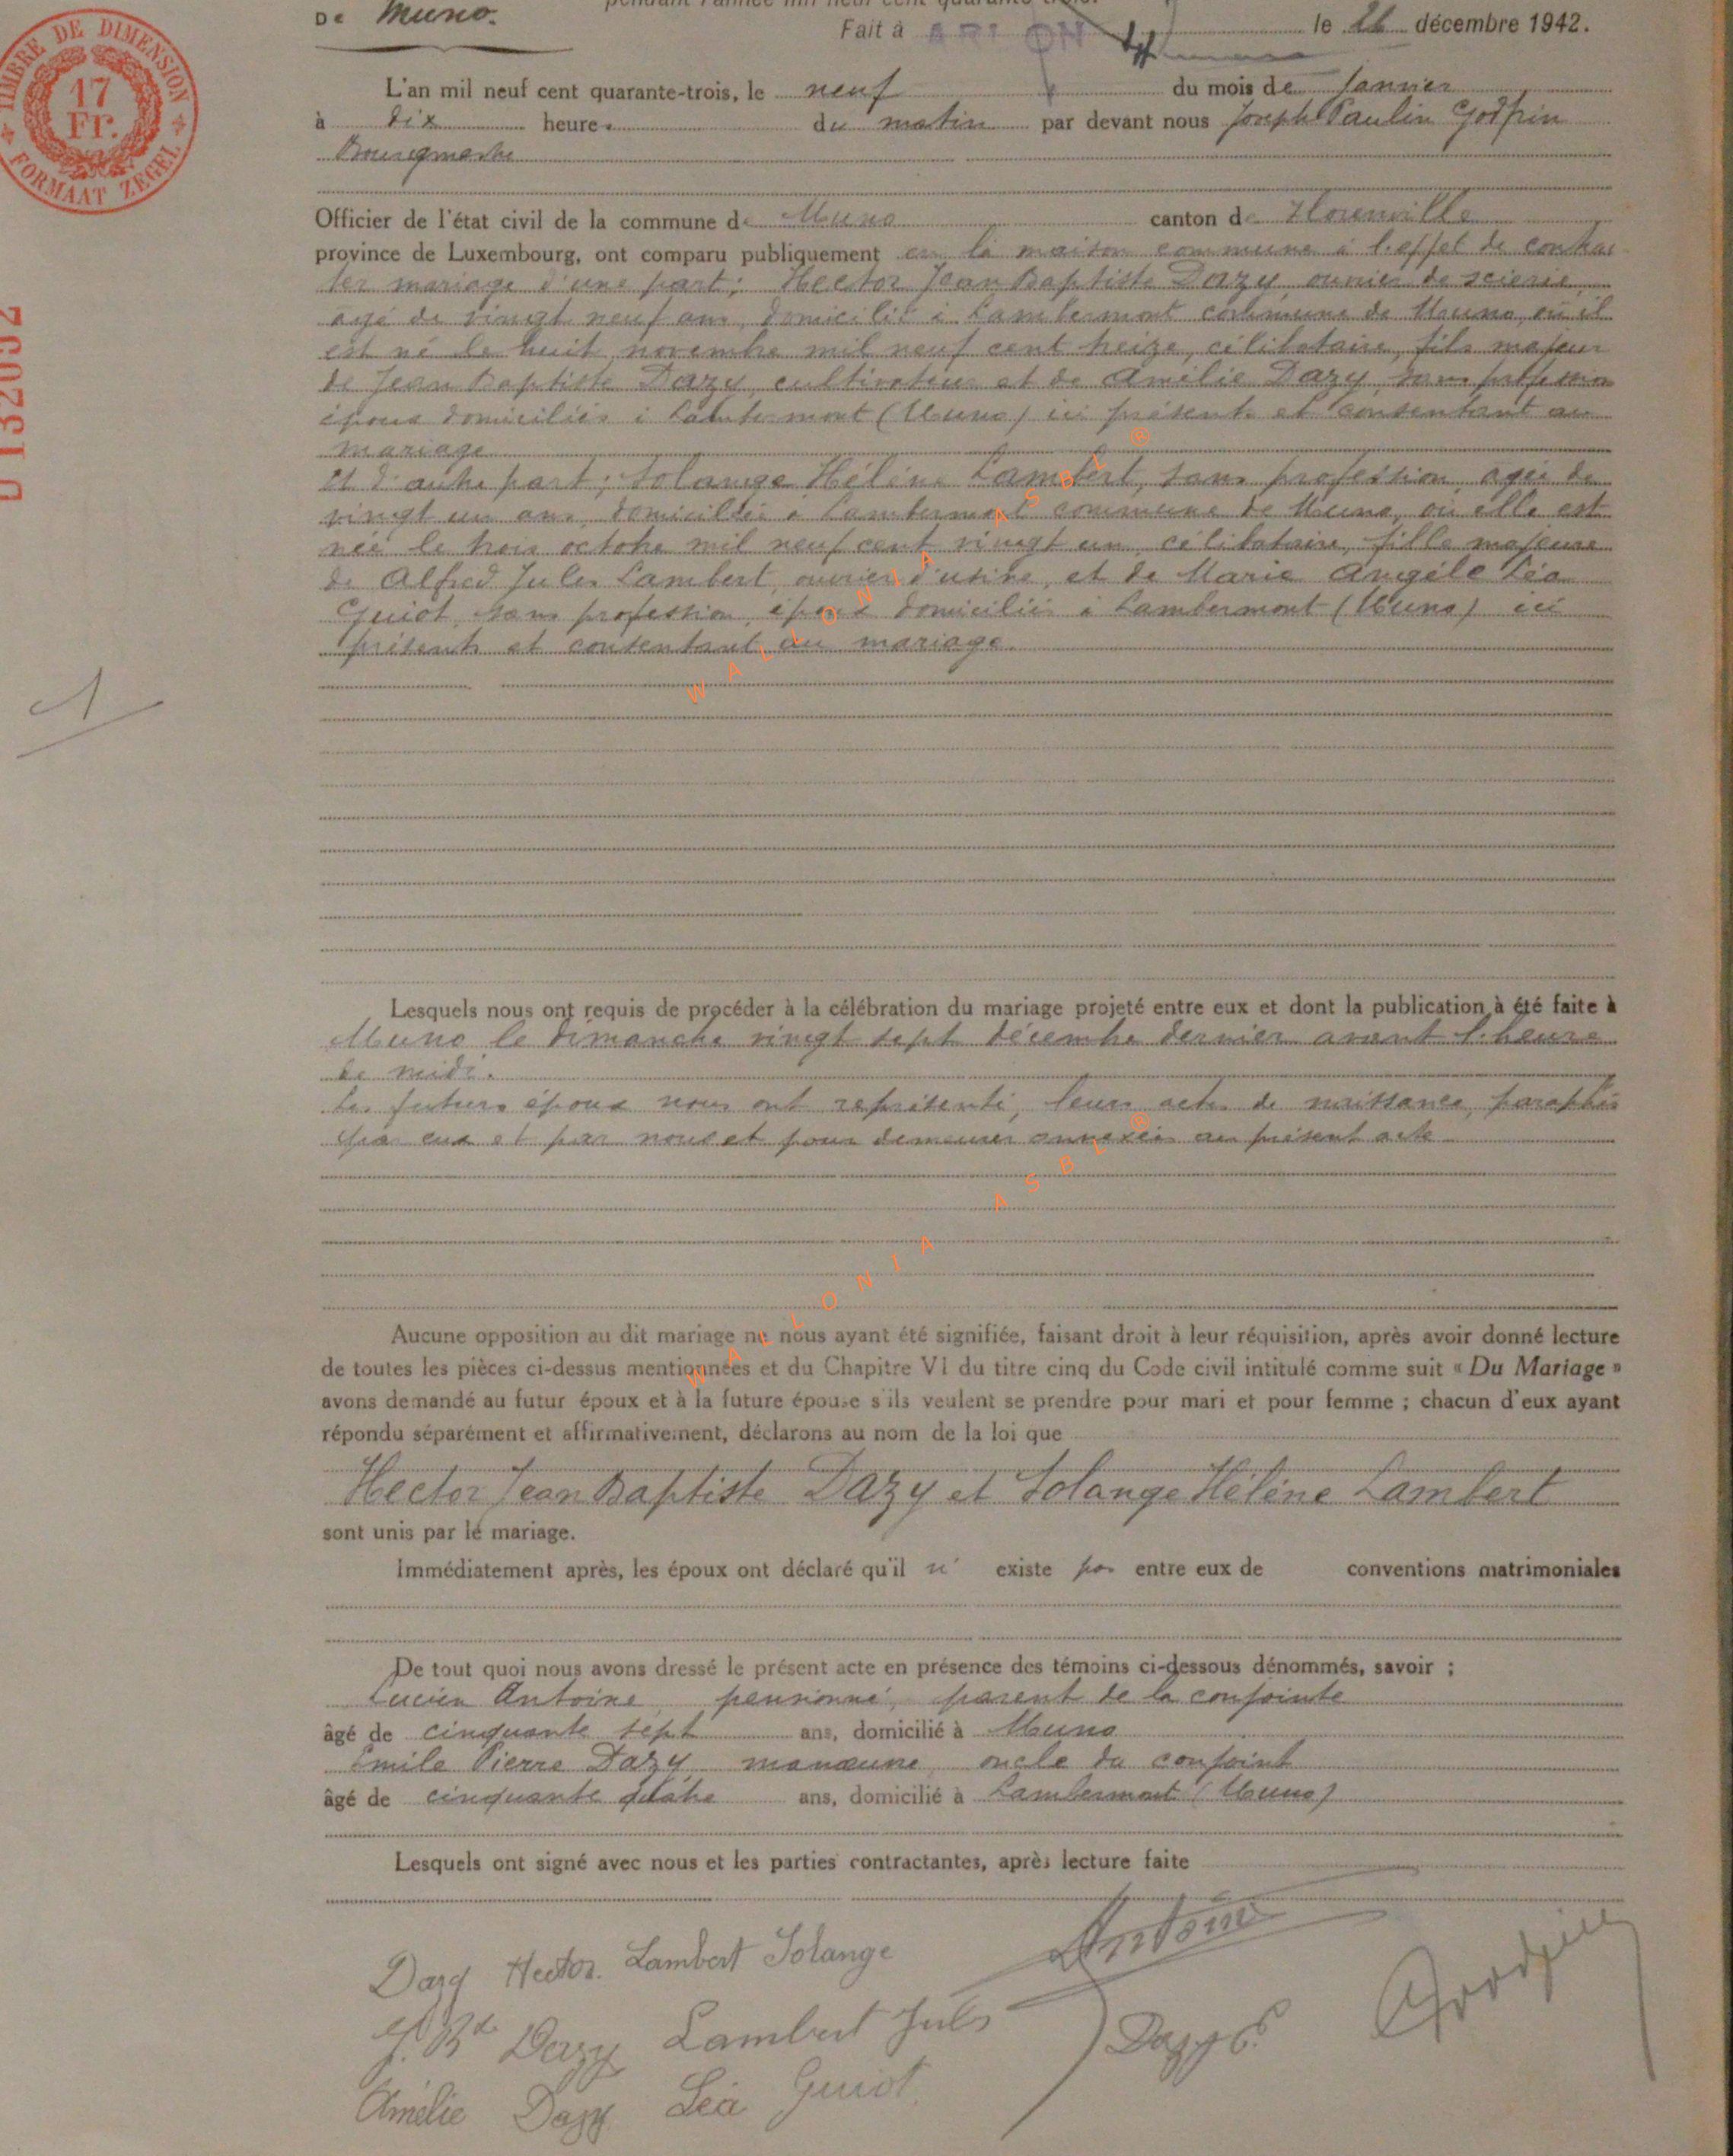 TIMBRE DE DIMENSION
17
Fr.
FORMAAT ZEGEL
De Muno.
pendant l'année mil neuf cent quarante-trois.
Fait à ARLON le 26 décembre 1942.
L'an mil neuf cent quarante-trois, le neuf du mois de Janvier
à dix heures du matin par devant nous Joseph Paulin Godfrin
Bourgmestre
Officier de l'état civil de la commune de Muno canton de Florenville
province de Luxembourg, ont comparu publiquement en la maison commune à l'effet de contrac
ter mariage d'une part; Hector Jean Baptiste Dazy, ouvrier de scierie,
agé de vingt neuf ans, domicilié à Lambermont commune de Muno, où il
est né le huit novembre mil neuf cent treize, célibataire, fils majeur
de Jean Baptiste Dazy, cultivateur et de Amélie Dazy, sans profession
époux domiciliés à Lambermont (Muno) ici présents et consentant au
mariage
et d'autre part; Solange Hélène Lambert, sans profession, agée de
vingt un ans, domiciliée à Lambermont commune de Muno, où elle est
née le trois octobre mil neuf cent vingt un, célibataire, fille majeure
de Alfred Jules Lambert, ouvrier d'usine, et de Marie Angèle Léa
Guiot, sans profession, époux domiciliés à Lambermont (Muno) ici
présents et consentant au mariage.
1
Lesquels nous ont requis de procéder à la célébration du mariage projeté entre eux et dont la publication à été faite à
Muno le dimanche vingt sept décembre dernier avant l'heure
de midi.
Les futurs époux nous ont représenté, leurs actes de naissance, paraphés
par eux et par nous et pour demeurer annexés au présent acte
Aucune opposition au dit mariage ne nous ayant été signifiée, faisant droit à leur réquisition, après avoir donné lecture
de toutes les pièces ci-dessus mentionnées et du Chapitre VI du titre cinq du Code civil intitulé comme suit « Du Mariage »
avons demandé au futur époux et à la future épouse s'ils veulent se prendre pour mari et pour femme ; chacun d'eux ayant
répondu séparément et affirmativement, déclarons au nom de la loi que
Hector Jean Baptiste Dazy et Solange Hélène Lambert
sont unis par le mariage.
Immédiatement après, les époux ont déclaré qu'il n' existe pas entre eux de conventions matrimoniales
De tout quoi nous avons dressé le présent acte en présence des témoins ci-dessous dénommés, savoir ;
Lucien Antoine, pensionné, parent de la conjointe
âgé de cinquante sept ans, domicilié à Muno
Emile Pierre Dazy manœuvre, oncle du conjoint
âgé de cinquante quatre ans, domicilié à Lambermont (Muno)
Lesquels ont signé avec nous et les parties contractantes, après lecture faite
Dazy Hector. Lambert Solange Antoine
J. Bte Dazy Lambert Juls Dazy E. Godfrin
Amélie Dazy Léa Guiot
WALLONIA ASBL ®
WALLONIA ASBL ®